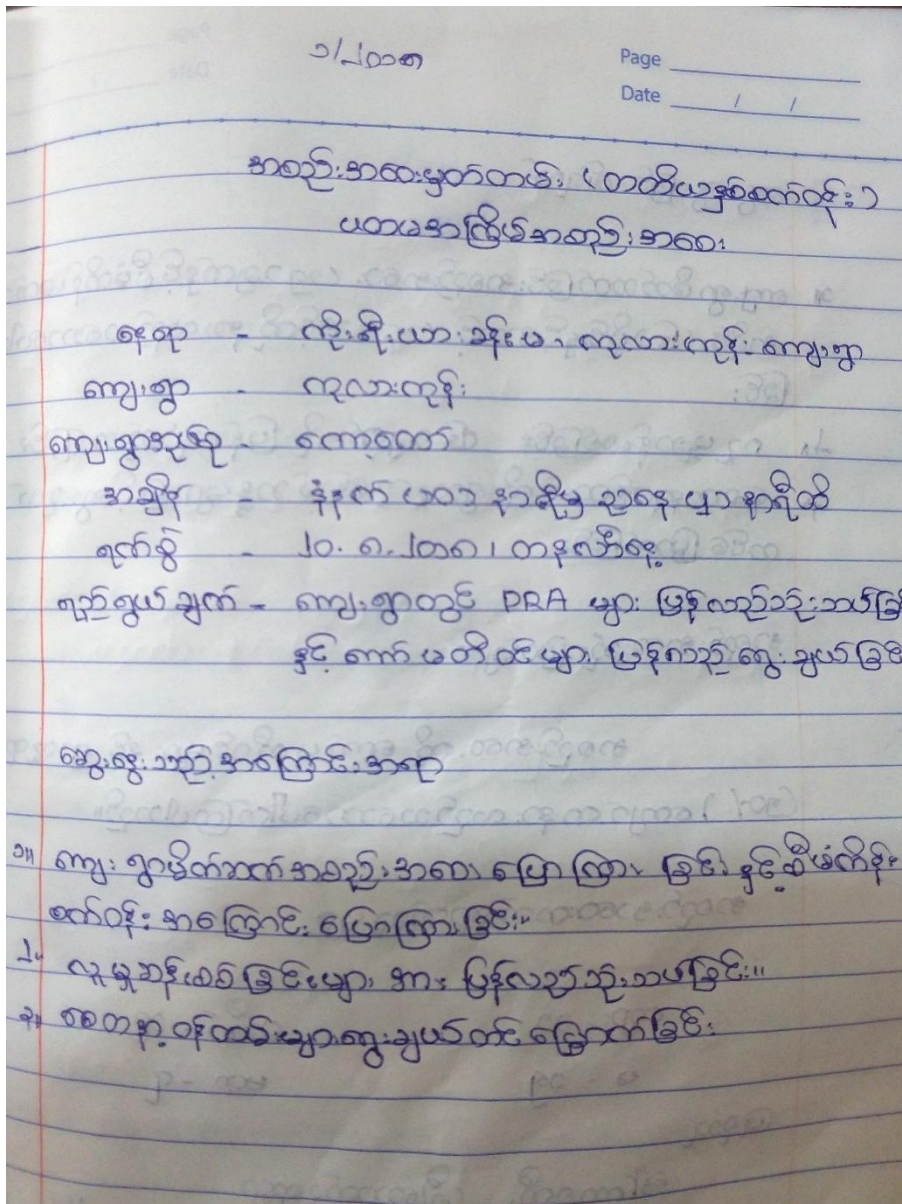 ၁/၂၀၁၈
Page
Date / /
အစည်းအဝေးမှတ်တမ်း (တတိယနှစ်စက်ဝန်း)
ပထမအကြိမ်အစည်းအဝေး
နေရာ - ကိုးရီးယားခန်းမ၊ ကုလားကုန်းကျေးရွာ
ကျေးရွာ - ကုလားကုန်း
ကျေးရွာအုပ်စု - ကော့တော်
အချိန် - နံနက် ၁၀း၁၃ နာရီမှ ညနေ ၂ နာရီထိ
ရက်စွဲ - ၂၀.၈.၂၀၁၈၊ တနင်္လာနေ့
ရည်ရွယ်ချက် - ကျေးရွာတွင် PRA များ ပြန်လည်သုံးသပ်ခြ
နှင့် ကော်မတီဝင်များ ပြန်လည်ရွေးချယ်ခြင်
ဆွေးနွေးသည့်အကြောင်းအရာ
၁။ ကျေးရွာမိတ်ဆက်အစည်းအဝေး ပြောကြားခြင်း နှင့် စီမံကိန်း
စက်ဝန်းအကြောင်း ပြောကြားခြင်း။
၂။ လူမှုဆန်းစစ်ခြင်းများအား ပြန်လည်သုံးသပ်ခြင်း။
၃။ စေတနာ့ဝန်ထမ်းများရွေးချယ်တင်မြှောက်ခြင်း